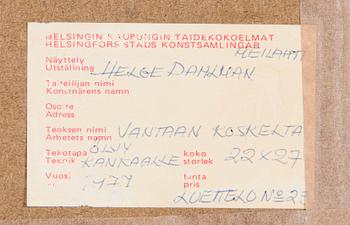 HELSINGIN KAUPUNGIN TAIDEKOKOELMAT
HELSINGFORS STADS KONSTSAMLINGAR
MEILAHTI
Näyttely
Utställning HELGE DAHLMAN
Taiteilijan nimi
Konstnärens namn
Osoite
Address
Teoksen nimi VANTAAN KOSKELTA
Arbetets namn
Tekotapa ÖLJY koko
Teknik KANKAALLE storlek 22x27
Vuosi 1979 hinta
pris
LUETTELO No 23